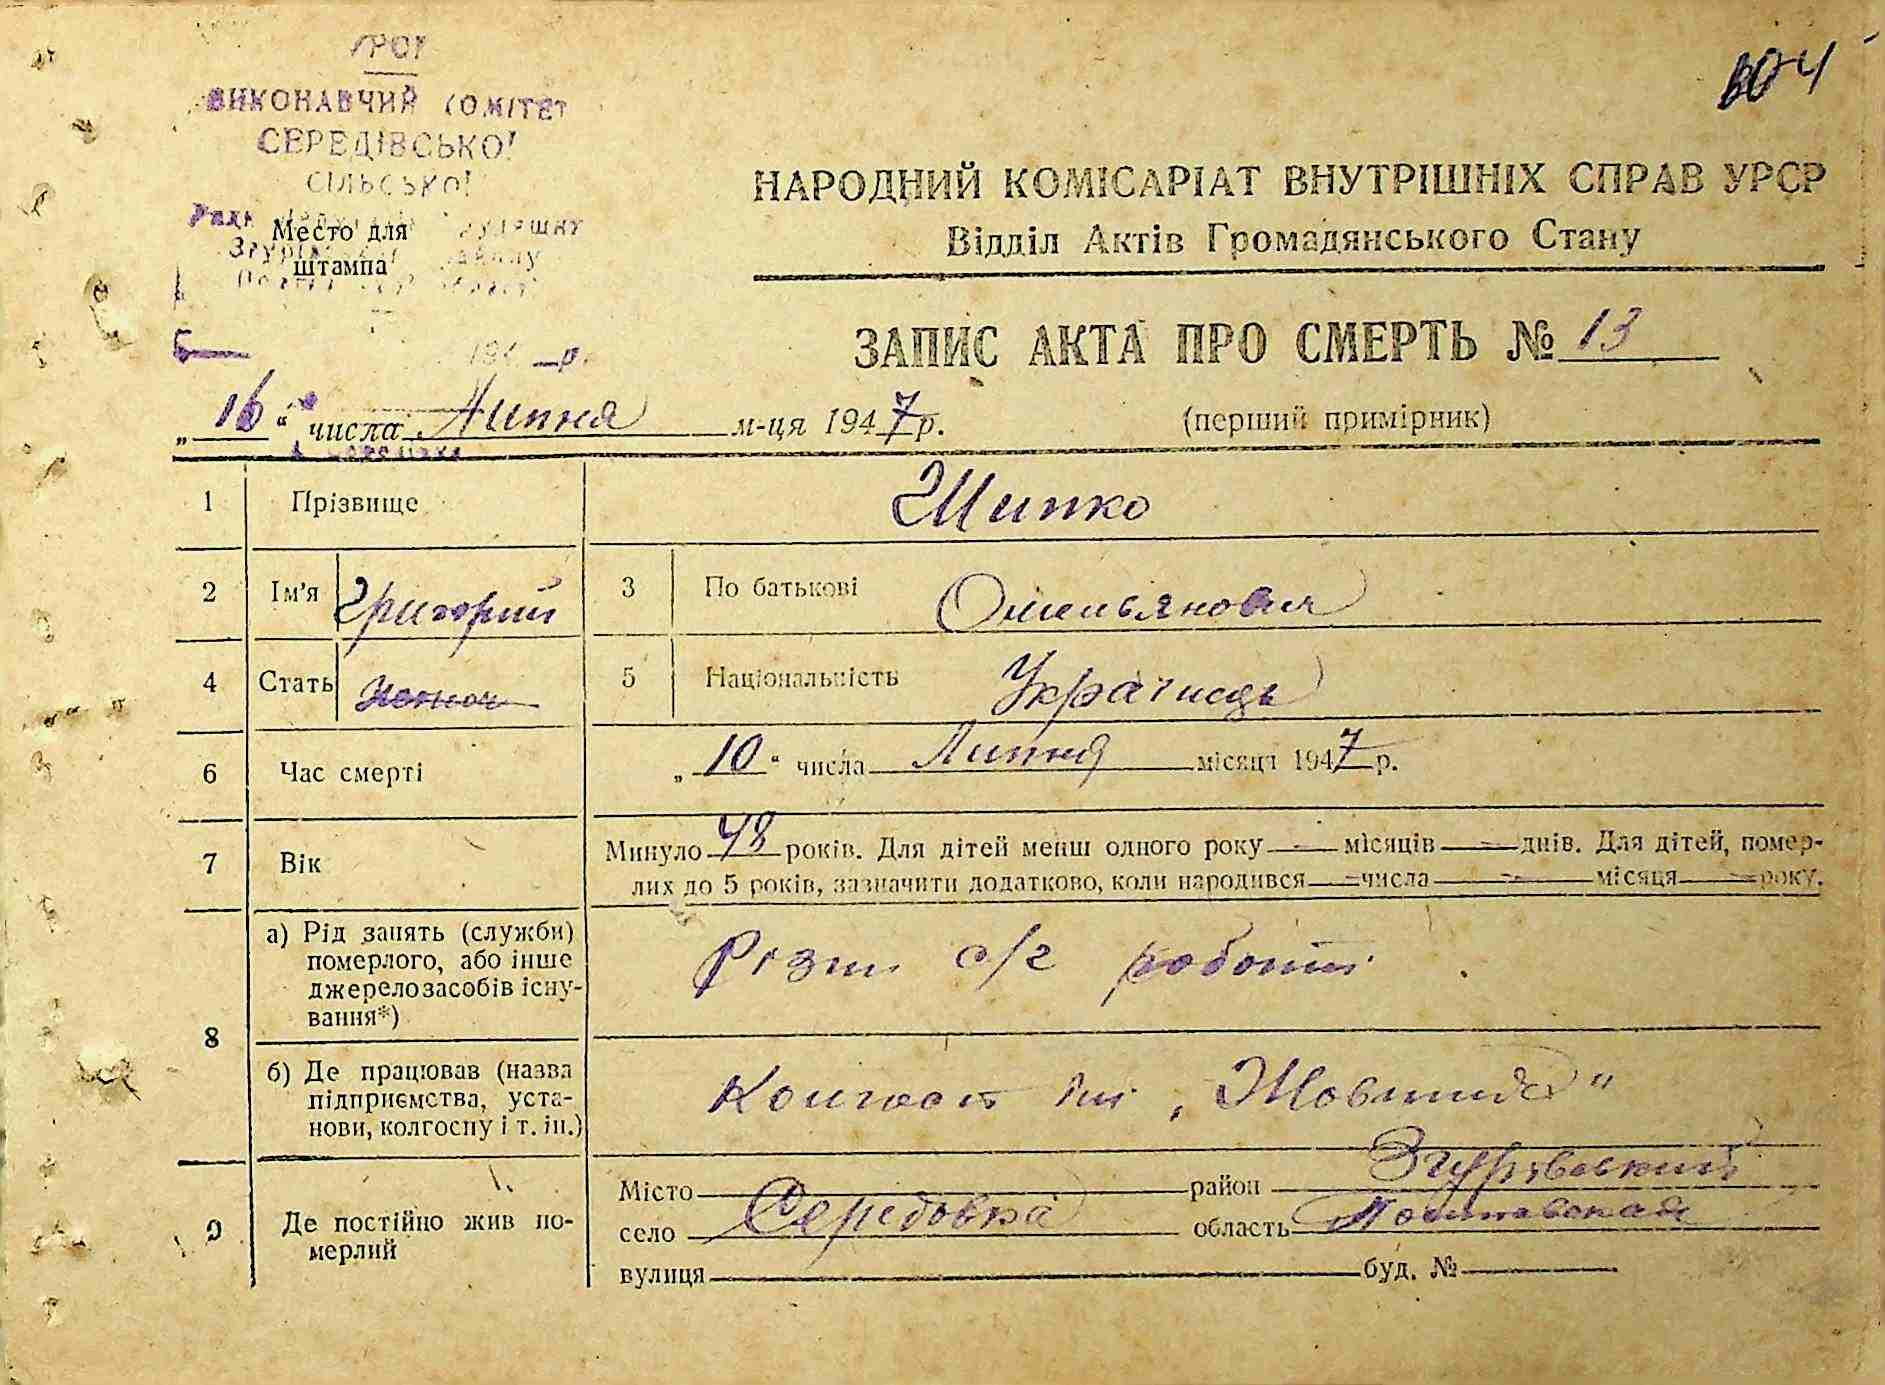 УРСР
ВИКОНАВЧИЙ КОМІТЕТ
СЕРЕДІВСЬКОЇ
СІЛЬСЬКОЇ
Ради
Место для
штампа
604
НАРОДНИЙ КОМІСАРІАТ ВНУТРІШНІХ СПРАВ УРСР
Відділ Актів Громадянського Стану
ЗАПИС АКТА ПРО СМЕРТЬ № 13
„16“ числа Липня м-ця 1947 р. (перший примірник)
1 Прізвище Шипко
2 Ім'я Григорий 3 По батькові Омельянович
4 Стать 5 Національність Українець
6 Час смерті „10“ числа Липня місяця 1947 р.
7 Вік Минуло 48 років. Для дітей менш одного року — місяців — днів. Для дітей, помер-
лих до 5 років, зазначити додатково, коли народився — числа — місяця — року.
8 а) Рід занять (служби)
померлого, або інше
джерело засобів існу-
вання*)
Різни с/г роботи
б) Де працював (назва
підприємства, уста-
нови, колгоспу і т. ін.)
Колгосп „Жовтня"
9 Де постійно жив по-
мерлий
Місто район Згурівский
село Середовка область Полтавская
вулиця буд. №